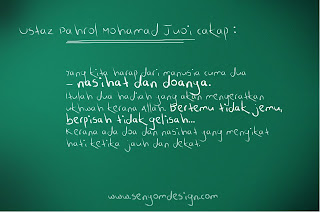 ustaz Pahrol Mohamad Juoi cakap :
yang kita harap dari manusia cuma dua
– nasihat dan doanya.
Itulah dua hadiah yang akan menyeratkan
ukhwah kerana Allah. Bertemu tidak jemu,
berpisah tidak gelisah...
Kerana ada doa dan nasihat yang mengikat
hati ketika jauh dan dekat.
www.senyumdesign.com